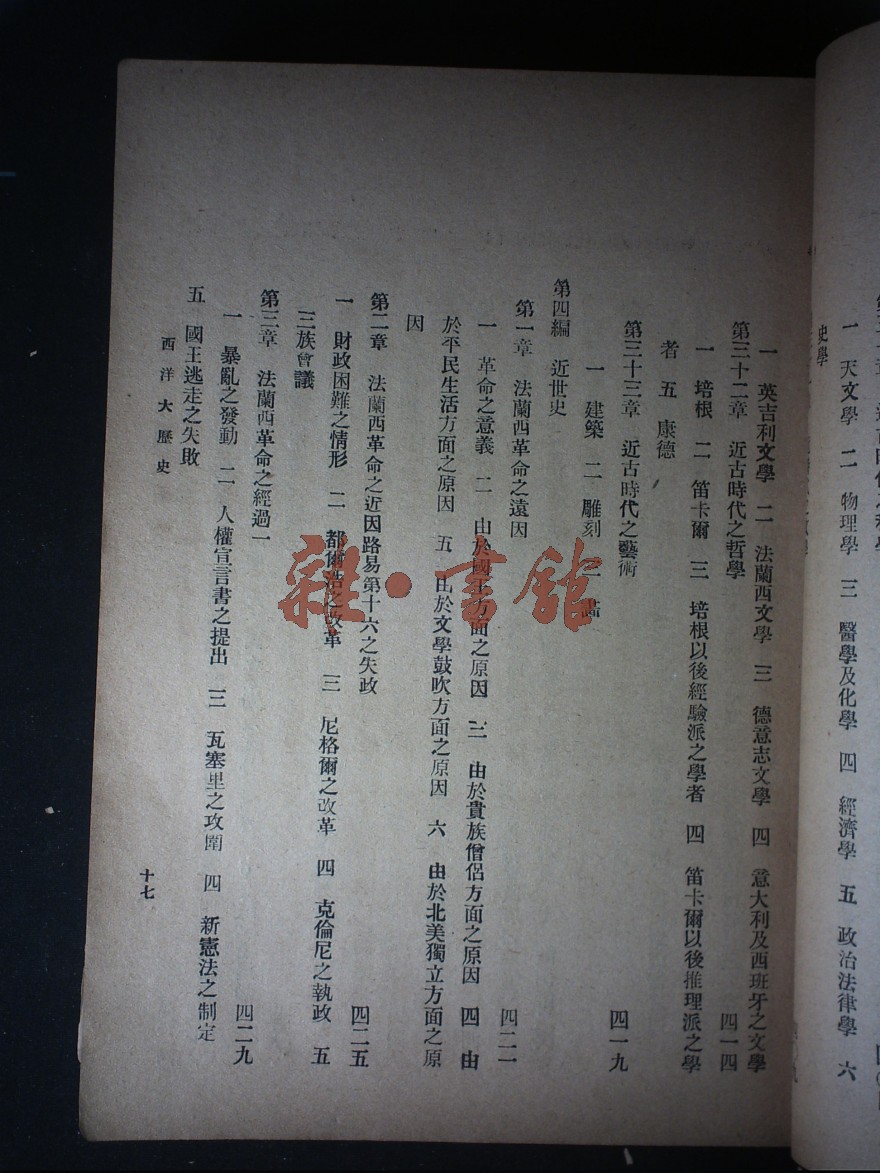 史學
一 天文學 二 物理學 三 醫學及化學 四 經濟學 五 政治法律學 六
一 英吉利文學 二 法蘭西文學 三 德意志文學 四 意大利及西班牙之文學
第三十二章 近古時代之哲學 四一四
一 培根 二 笛卡爾 三 培根以後經驗派之學者 四 笛卡爾以後推理派之學
者 五 康德
第三十三章 近古時代之藝術 四一九
一 建築 二 雕刻 三 畫
第四編 近世史
第一章 法蘭西革命之遠因 四二一
一 革命之意義 二 由於國王方面之原因 三 由於貴族僧侶方面之原因 四 由
於平民生活方面之原因 五 由於文學鼓吹方面之原因 六 由於北美獨立方面之原
因
第二章 法蘭西革命之近因路易第十六之失政 四二五
一 財政困難之情形 二 都爾 之改革 三 尼格爾之改革 四 克倫尼之執政 五
三族會議
第三章 法蘭西革命之經過一 四二九
一 暴亂之發動 二 人權宣言書之提出 三 瓦塞里之攻圍 四 新憲法之制定
五 國王逃走之失敗
西洋大歷史
十七
雜·書館